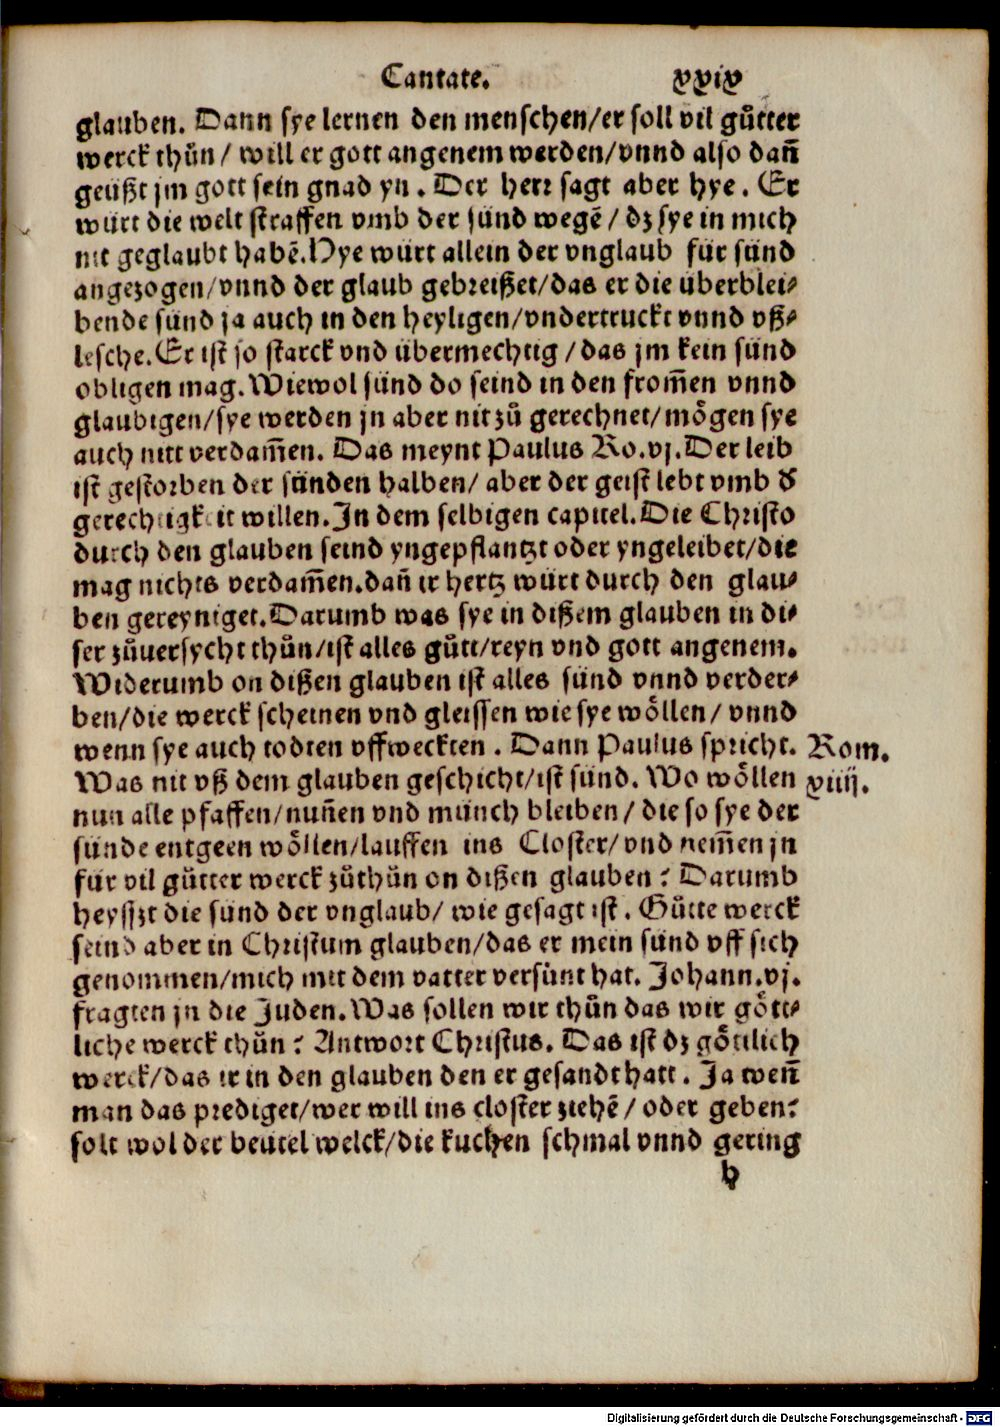 Cantate. xxix
glauben. Dann sye lernen den menschen/er soll vil gůtter
werck thůn/ will er gott angenem werden/vnnd also dañ
geüßt jm gott sein gnad yn. Der herr sagt aber hye. Er
würt die welt straffen vmb der sünd wegẽ/ dz sye in mich
nit geglaubt habẽ. Hye würt allein der vnglaub für sünd
angezogen/vnnd der glaub gebreißet/das er die überblei⸗
bende sünd ja auch in den heyligen/vndertruckt vnnd vß⸗
lesche. Er ist so starck vnd übermechtig/das jm kein sünd
obligen mag. Wiewol sünd do seind in den from̃en vnnd
glaubigen/sye werden jn aber nit zů gerechnet/mögen sye
auch nitt verdam̃en. Das meynt Paulus Ro.vj. Der leib
ist gestorben der sünden halben/ aber der geist lebt vmb d̕
gerechtigkeit willen. In dem selbigen capitel. Die Christo
durch den glauben seind yngepflantzt oder yngeleibet/die
mag nichts verdam̃en. dañ ir hertz würt durch den glau⸗
ben gereyniget. Darumb was sye in dißem glauben in di⸗
ser zůuersycht thůn/ist alles gůtt/reyn vnd gott angenem.
Widerumb on dißen glauben ist alles sünd vnnd verder⸗
ben/die werck scheinen vnd gleissen wie sye wöllen/ vnnd
wenn sye auch todten vffweckten. Dann Paulus spricht. Rom.
Was nit vß dem glauben geschicht/ist sünd. Wo wöllen xiiij.
nun alle pfaffen/nuñen vnd münch bleiben/ die so sye der
sünde entgeen wöllen/lauffen ins Closter/ vnd nem̃en jn
für vil gůtter werck zůthůn on dißen glauben? Darumb
heysszt die sünd der vnglaub/ wie gesagt ist. Gůtte werck
seind aber in Christum glauben/das er mein sünd vff sich
genommen/mich mit dem vatter versünt hat. Johann.vj.
fragten jn die Juden. Was sollen wir thůn das wir gött⸗
liche werck thůn? Antwort Christus. Das ist dz göttlich
werck/das ir in den glauben den er gesandt hatt. Ja weñ
man das prediget/wer will ins closter ziehẽ/ oder geben?
solt wol der beutel welck/die kuchen schmal vnnd gering
h
Digitalisierung gefördert durch die Deutsche Forschungsgemeinschaft - DFG